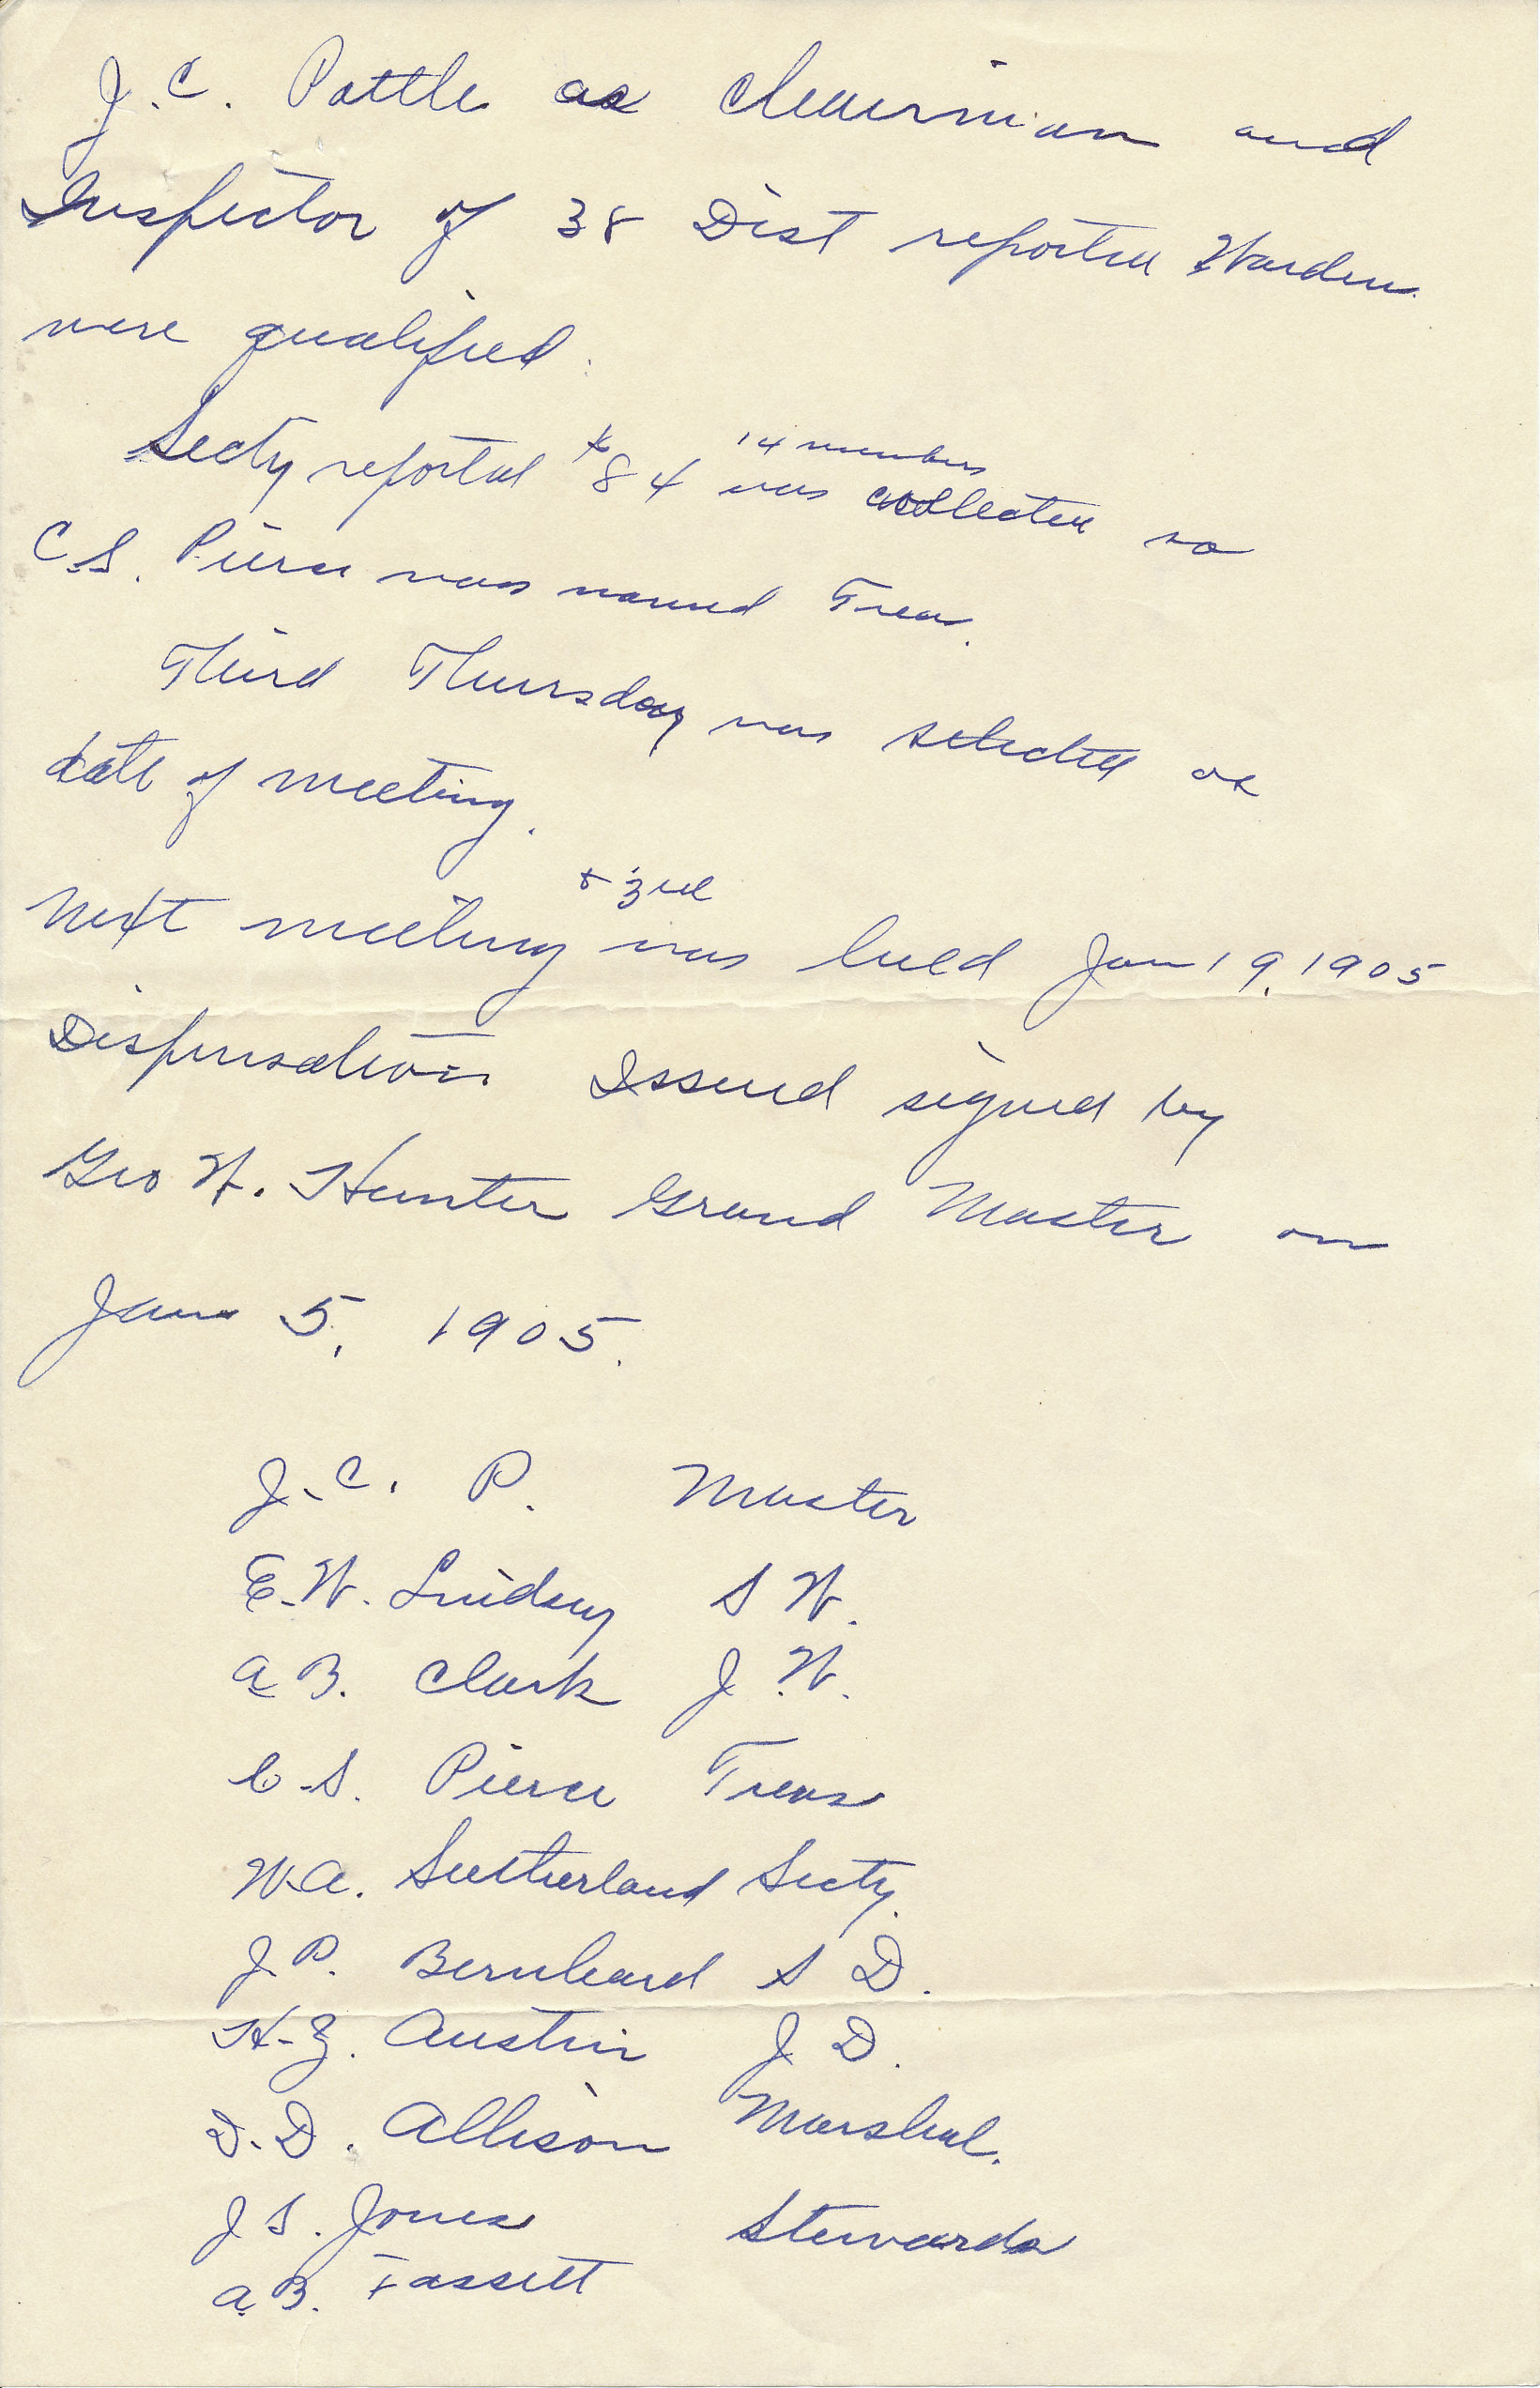 J.C. Pattle as chairman and
Inspector of 38 Dist reported Warden
were qualified.
Secty reported $84 14 members was collected so
C.S. Pierce was named Treas.
Third Thursday was selected as
date of meeting.
Next meeting & 3rd was held Jan 19, 1905
Dispensation Issued signed by
Geo W. Hunter Grand Master on
Jan 5, 1905.
J.C. P. Master
E.W. Lindsey S W.
A.B. Clark J. W.
C.S. Pierce Treas
W.A. Sutherland Secty.
J.P. Bernheard S D.
H.Z. Austin J D.
D.D. Allison Marshal.
J S. Jones Stewards
A.B. Fassett